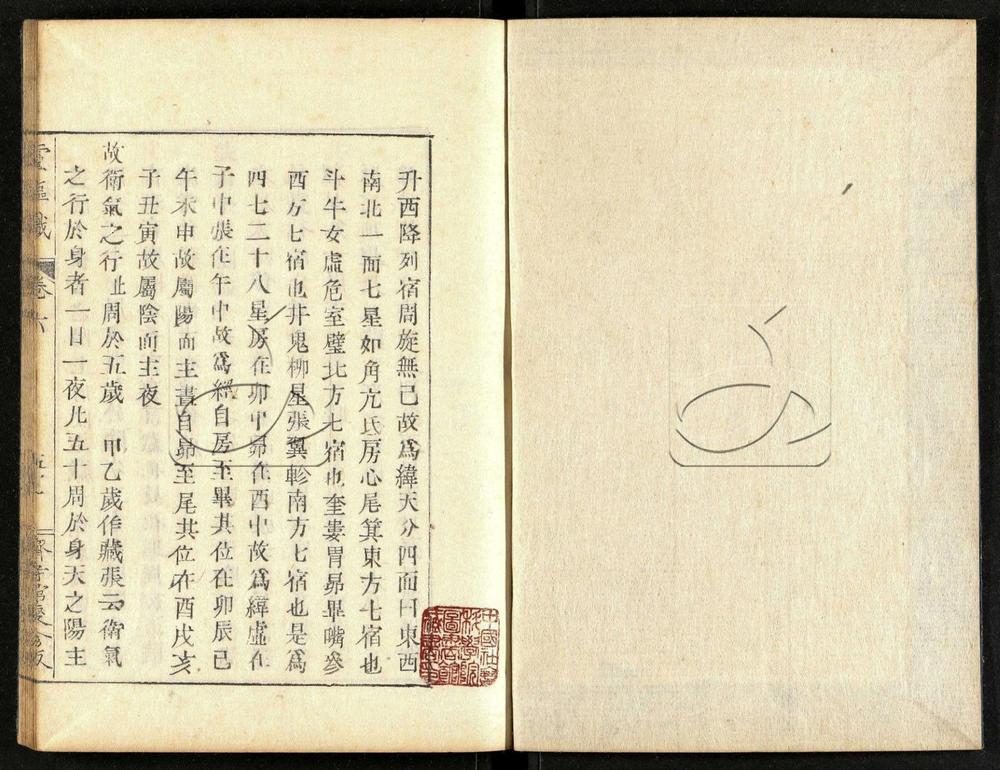 升西降列宿周旋無已故爲緯天分四面曰東西
南北一面七星如角亢氐房心尾箕東方七宿也
斗牛女虛危室璧北方七宿也奎婁胃昴畢嘴參
西方七宿也井鬼柳星張翼軫南方七宿也是爲
四七二十八星房在卯中昴在酉中故爲緯虛在
子中張在午中故爲經自房至畢其位在卯辰巳
午未申故屬陽而主晝自昴至尾其位在酉戌亥
子丑寅故屬陰而主夜
故衛氣之行
周於五歲 甲乙歲作藏張云衛氣
之行於身者一日一夜凡五十周於身天之陽主
靈樞識 卷六